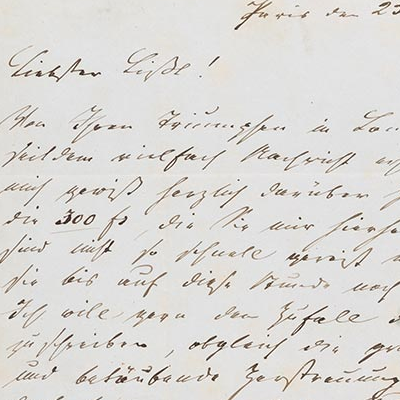 Paris den 23
Liebster Lißt!
Von Ihren Triumphen in Lon
seitdem vielfach Nachricht er
mich gewiß herzlich darüber
die 300 fs, die Sie mir hierhe
sind nicht so schnell gereist
sie bis auf diese Stunde noch
Ich will gern dem Zufalle d
zuschreiben, obgleich die gr
und betäubende Zerstreuung